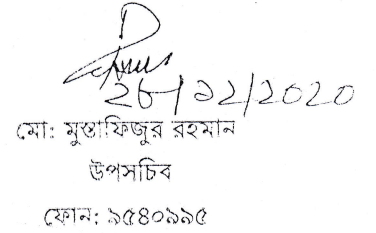 ২৮/১২/২০২০
মো: মুস্তাফিজুর রহমান
উপসচিব
ফোন: ৯৫৪০৯৯৫